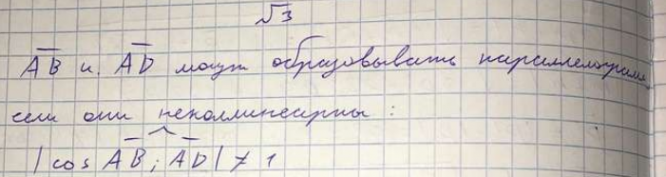 √3
AB и AD могут образовывать параллелограмм,
если они неколлинеарны :
| cos AB ; AD | ≠ 1